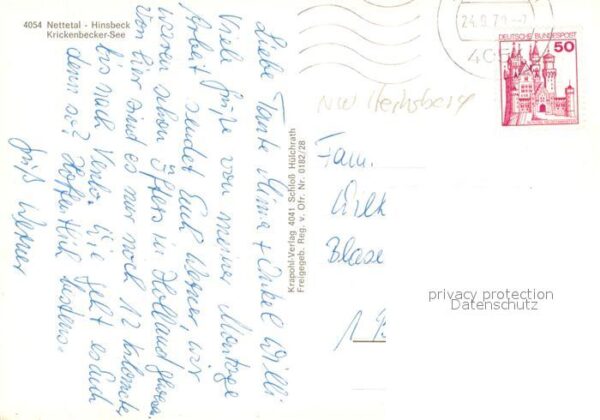 4054 Nettetal - Hinsbeck
Krickenbecker-See
Liebe Tante Mima + Onkel Willi
Viele Grüße von meiner Montage
Arbeit sendet Euch Werner, wir
waren schon öfters in Holland
Von hier sind es nur noch 12 Kilometer
bis nach Venlo. Wie geht es Euch
denn so? Hoffentlich bestens.
Gruß Werner
Krapohl-Verlag 4041 Schloß Hülchrath
Freigegeb. Reg. v. Dfr. Nr. 0182/28
DEUTSCHE BUNDESPOST
50
NW Herhsberg
Fam.
Wilk
Blase
privacy protection
Datenschutz